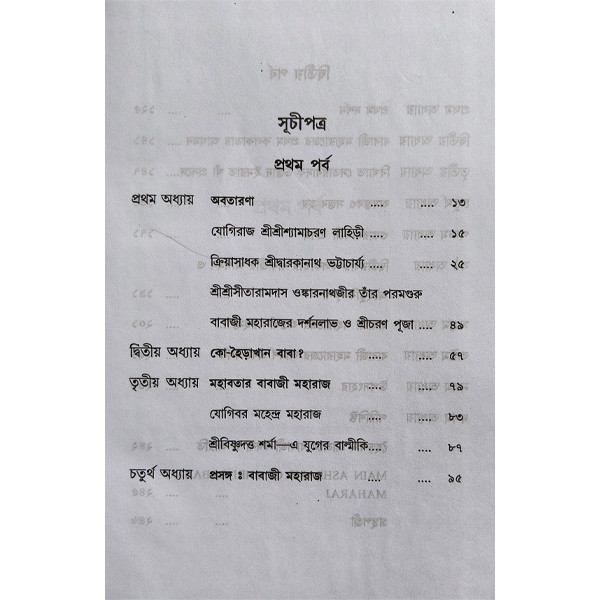 সূচীপত্র
প্রথম পর্ব
প্রথম অধ্যায় অবতারণা .... .... ১৩
যোগিরাজ শ্রীশ্রীশ্যামাচরণ লাহিড়ী .... .... ১৫
ক্রিয়াসাধক শ্রীদ্বারকানাথ ভট্টাচার্য্য .... .... ২৫
শ্রীশ্রীসীতারামদাস ওঙ্কারনাথজীর তাঁর পরমগুরু
বাবাজী মহারাজের দর্শনলাভ ও শ্রীচরণ পূজা .... ৪৯
দ্বিতীয় অধ্যায় কো-হৈড়াখান বাবা? .... .... ৫৭
তৃতীয় অধ্যায় মহাবতার বাবাজী মহারাজ .... .... ৭৯
যোগিবর মহেন্দ্র মহারাজ .... .... ৮৩
শ্রীবিষ্ণুদত্ত শর্মা—এ যুগের বাল্মীকি .... .... ৮৭
চতুর্থ অধ্যায় প্রসঙ্গ ঃ বাবাজী মহারাজ .... .... ৯৫